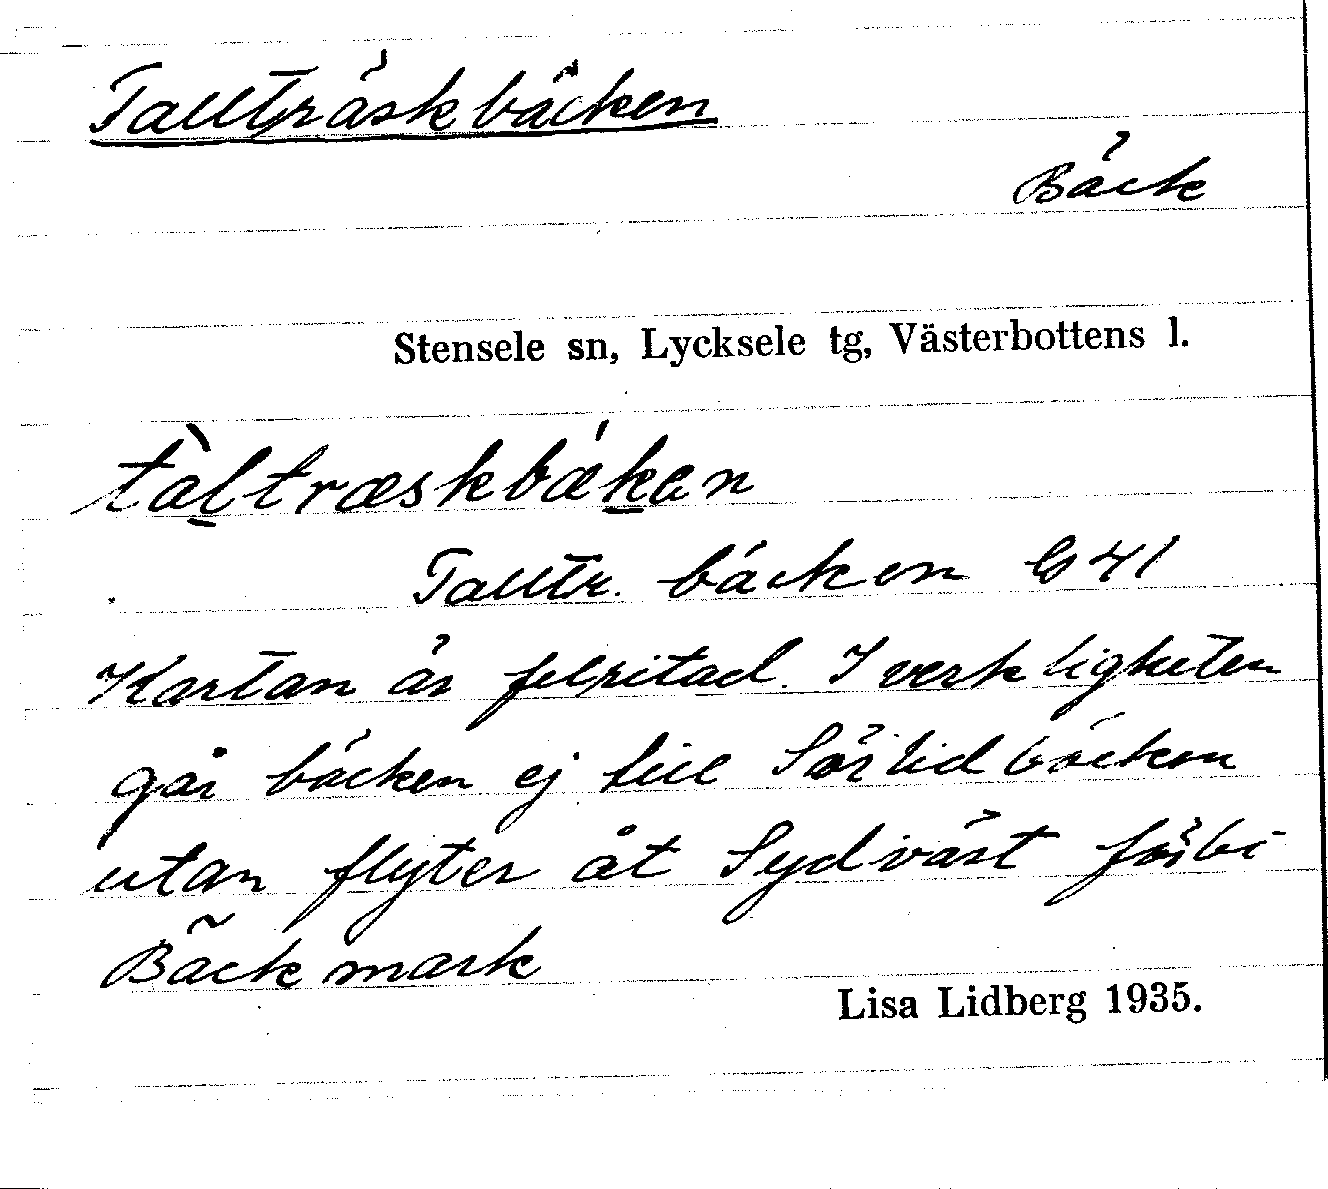 Tallträskbäcken
Bäck
Stensele sn, Lycksele tg, Västerbottens l.
tàl̲træskbǽk̲en
Talltr. bäcken G 41
Kartan är felritad. I verkligheten
går bäcken ej till Sörlidbäcken
utan flyter åt Sydväst förbi
Bäckmark
Lisa Lidberg 1935.